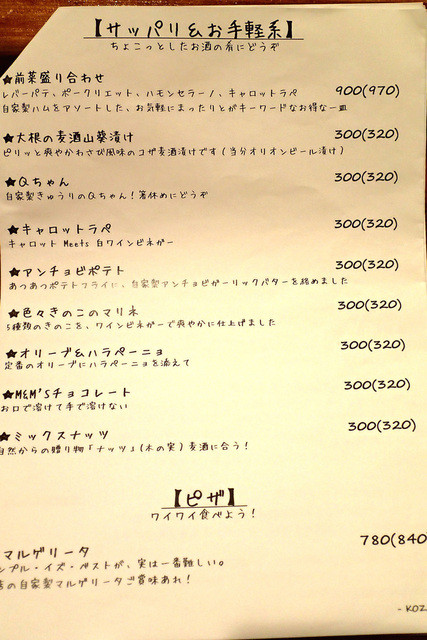 【サッパリ&お手軽系】
ちょこっとしたお酒の肴にどうぞ
★前菜盛り合わせ 900(970)
レバーパテ、ポークリエット、ハモンセラーノ、キャロットラペ
自家製ハムをアソートした、お気軽にまったりとがキーワードなお得な一皿
★大根の麦酒山葵漬け 300(320)
ピリッと爽やかわさび風味のコザ麦酒漬けです(当分オリオンビール漬け)
★Qちゃん 300(320)
自家製きゅうりのQちゃん!箸休めにどうぞ
★キャロットラペ 300(320)
キャロット Meets 白ワインビネガー
★アンチョビポテト 300(320)
あつあつポテトフライに、自家製アンチョビガーリックバターを絡めました
★色々きのこのマリネ 300(320)
5種類のきのこを、ワインビネガーで爽やかに仕上げました
★オリーブ&ハラペーニョ 300(320)
定番のオリーブにハラペーニョを添えて
★M&M'Sチョコレート 300(320)
お口で溶けて手で溶けない
★ミックスナッツ 300(320)
自然からの贈り物「ナッツ」(木の実)麦酒に合う!
【ピザ】
ワイワイ食べよう!
マルゲリータ 780(840
ンプル・イズ・ベストが、実は一番難しい。
の自家製マルゲリータご賞味あれ!
- KOZ